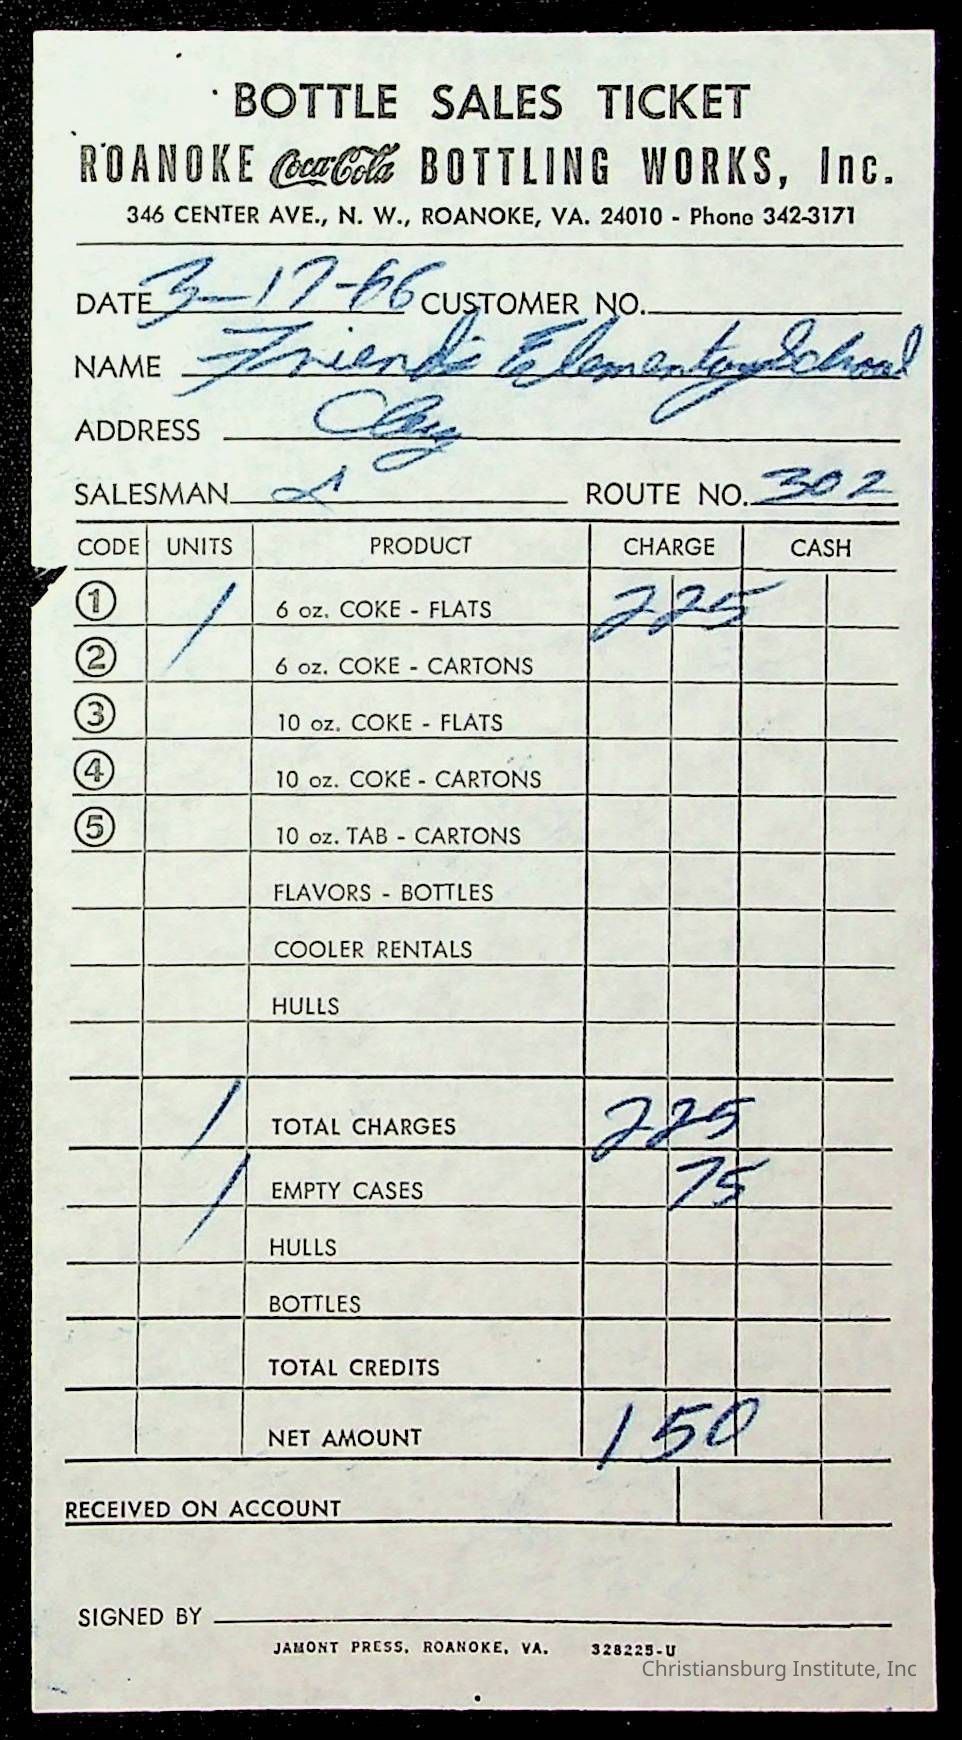 BOTTLE SALES TICKET
ROANOKE Coca-Cola BOTTLING WORKS, Inc.
346 CENTER AVE., N. W., ROANOKE, VA. 24010 - Phone 342-3171
DATE 3-17-66 CUSTOMER NO.
NAME Friends Elementary School
ADDRESS
SALESMAN ROUTE NO. 302
CODE UNITS PRODUCT CHARGE CASH
1 1 6 oz. COKE - FLATS 2 25
2 6 oz. COKE - CARTONS
3 10 oz. COKE - FLATS
4 10 oz. COKE - CARTONS
5 10 oz. TAB - CARTONS
FLAVORS - BOTTLES
COOLER RENTALS
HULLS
1 TOTAL CHARGES 2 25
1 EMPTY CASES 75
HULLS
BOTTLES
TOTAL CREDITS
NET AMOUNT 1 50
RECEIVED ON ACCOUNT
SIGNED BY
JAMONT PRESS, ROANOKE, VA. 328225-U
Christiansburg Institute, Inc